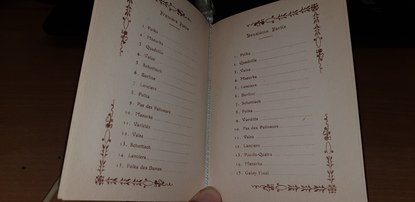 Première Partie
1. Polka
2. Mazurka
3. Quadrille
4. Valse
5. Schottisch
6. Berline
7. Lanciers
8. Polka
9. Pas des Patineurs
10. Mazurka
11. Varsovia
12. Valse
13. Schottisch
14. Lanciers
15. Polka des Dames
Deuxième Partie
1. Polka
2. Quadrille
3. Valse
4. Mazurka
5. Lanciers
6. Berline
7. Schottisch
8. Polka
9. Varsovia
10. Pas des Patineurs
11. Valse
12. Lanciers
13.
14. Mazurka
15. Galop Final